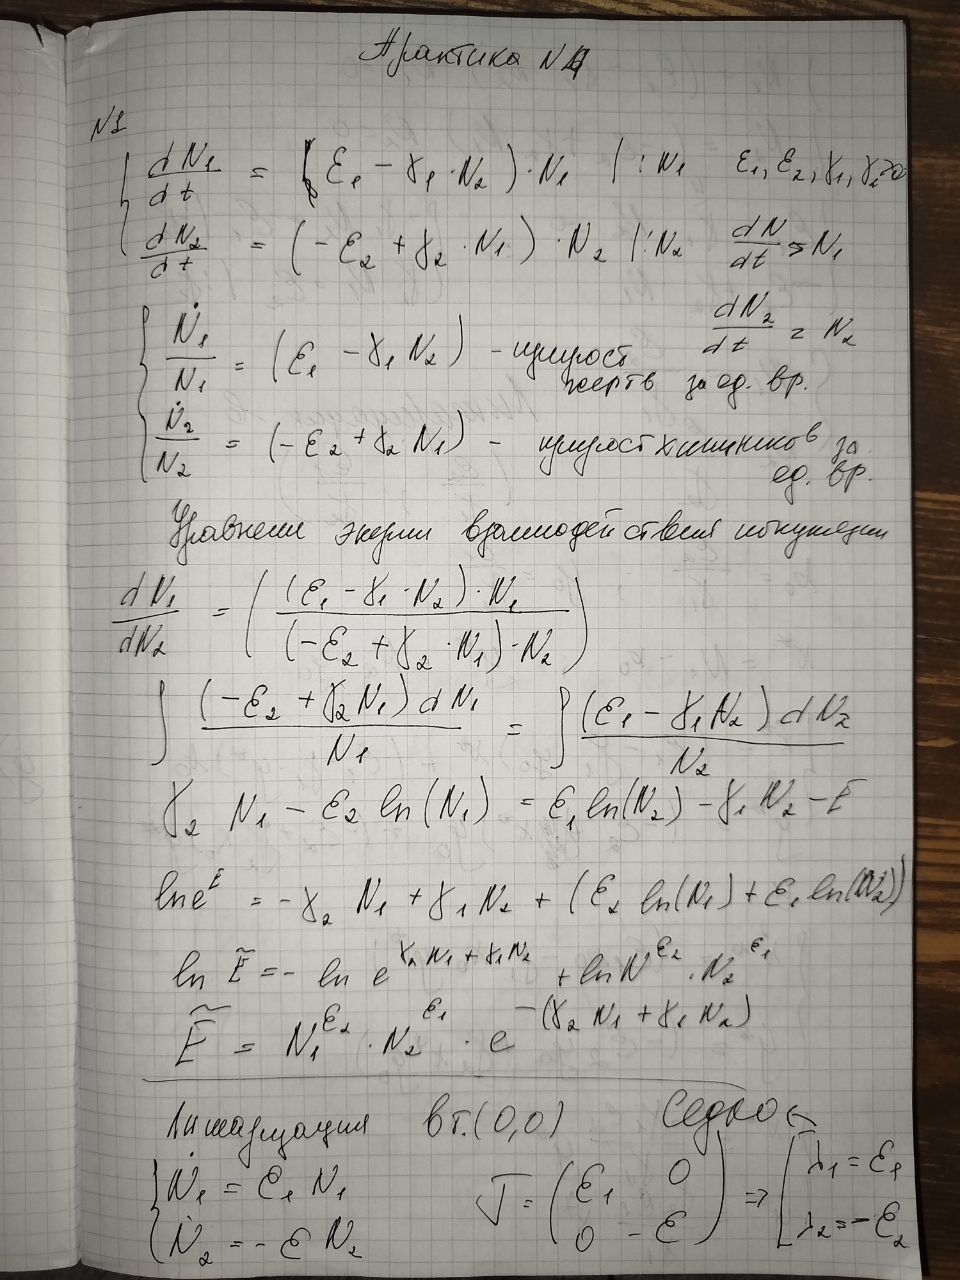 Практика N4
N1
dN₁/dt = (ε₁ - γ₁·N₂)·N₁ |:N₁ ε₁, ε₂, γ₁, γ₂>0
dN₂/dt = (-ε₂ + γ₂·N₁)·N₂ |:N₂ dN/dt = N₁
Ṅ₁/N₁ = (ε₁ - γ₁N₂) - прирост жертв за ед. вр. dN₂/dt = N₂
Ṅ₂/N₂ = (-ε₂ + γ₂N₁) - прирост хищников за ед. вр.
Уравнени энерии взаимодействия популяции
dN₁/dN₂ = ((ε₁ - γ₁·N₂)·N₁ / (-ε₂ + γ₂·N₁)·N₂)
∫ (-ε₂ + γ₂N₁)dN₁ / N₁ = ∫ (ε₁ - γ₁N₂)dN₂ / N₂
γ₂ N₁ - ε₂ ln(N₁) = ε₁ ln(N₂) - γ₁ N₂ - E
ln e^E = -γ₂ N₁ + γ₁ N₂ + (ε₂ ln(N₁) + ε₁ ln(N₂))
ln Ẽ = - ln e^(γ₂N₁ + γ₁N₂) + ln N^ε₂ · N₂^ε₁
Ẽ = N₁^ε₂ · N₂^ε₁ · e^-(γ₂N₁ + γ₁N₂)
Линаризация в т.(0,0) Седло
Ṅ₁ = ε₁ N₁ J = (ε₁ 0 / 0 -ε) => [λ₁ = ε₁
Ṅ₂ = -ε N₂ λ₂ = -ε₂